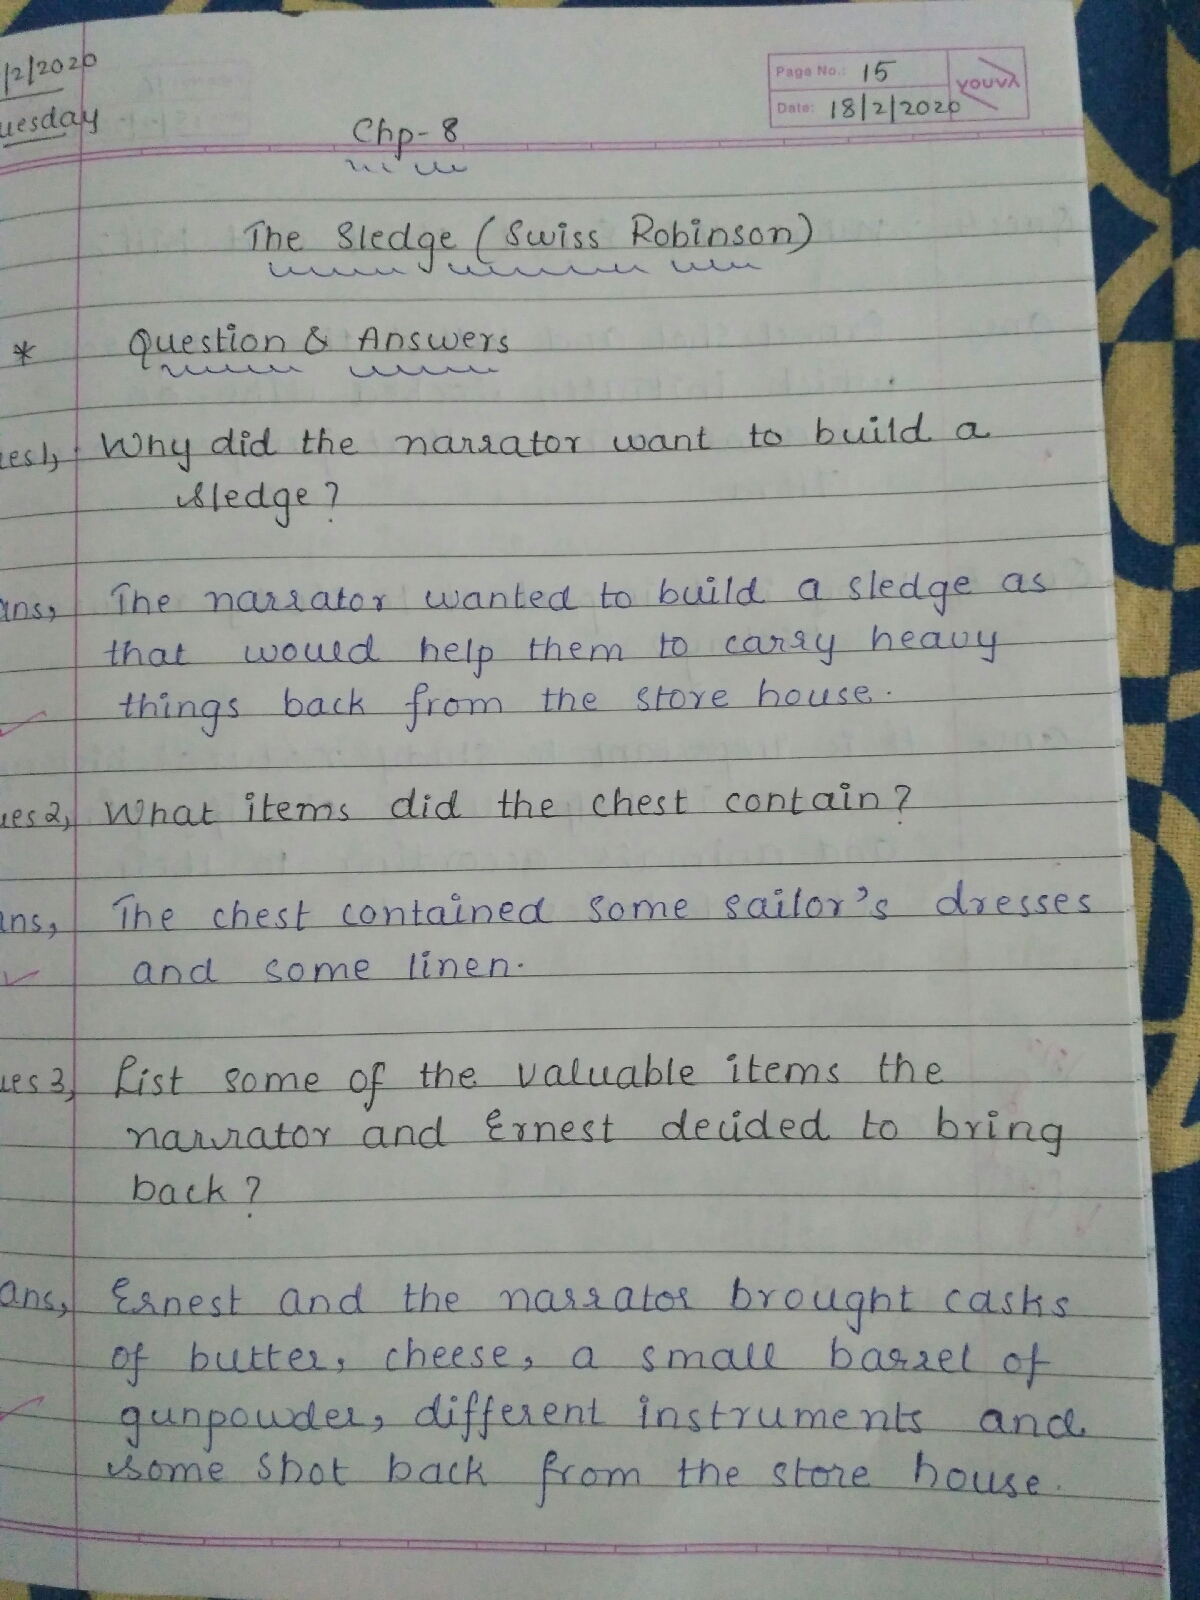 /2/2020
uesday
Page No.: 15
Date: 18/2/2020
YOUVA
Chp-8
The Sledge (Swiss Robinson)
* Question & Answers
es1, Why did the narrator want to build a
sledge?
ans, The narrator wanted to build a sledge as
that would help them to carry heavy
things back from the store house.
ues 2, What items did the chest contain?
ans, The chest contained some sailor's dresses
and some linen.
ues 3, List some of the valuable items the
narrator and Ernest decided to bring
back?
ans, Ernest and the narrator brought casks
of butter, cheese, a small barrel of
gunpowder, different instruments and
some shot back from the store house.